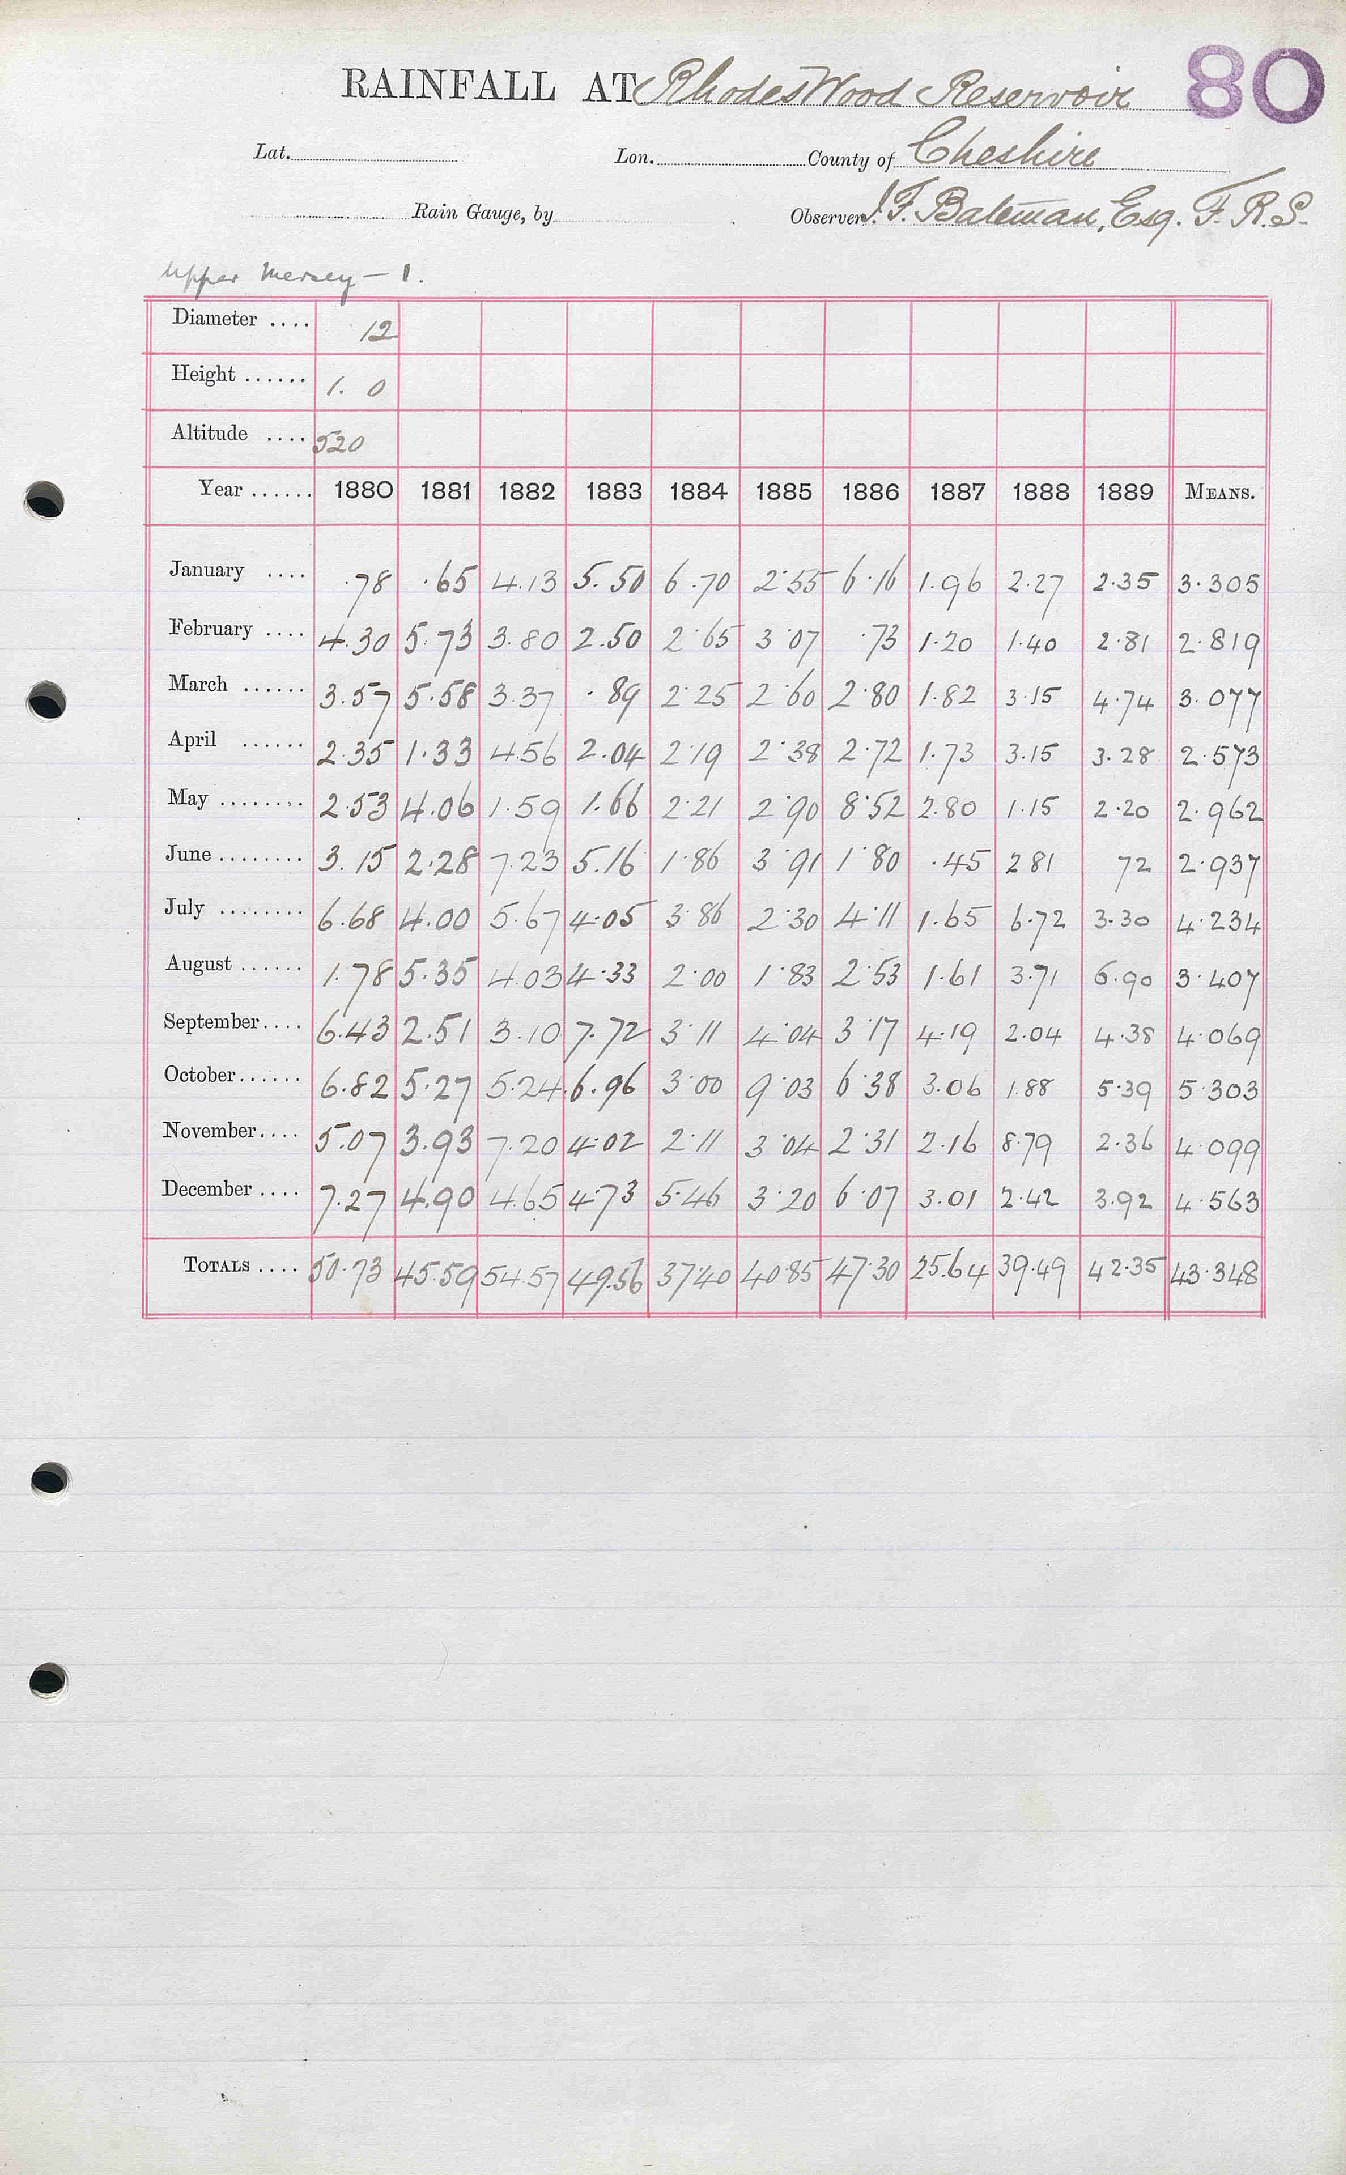 80
RAINFALL AT Rhodes Wood Reservoir
Lat. Lon. County of Cheshire
Rain Gauge, by Observer J. F. Bateman, Esq. F.R.S.
Upper Mersey — 1.
Diameter .... 12
Height ...... 1. 0
Altitude .... 520
Year ...... 1880 1881 1882 1883 1884 1885 1886 1887 1888 1889 MEANS.
January .... .78 .65 4.13 5.50 6.70 2.55 6.16 1.96 2.27 2.35 3.305
February .... 4.30 5.73 3.80 2.50 2.65 3.07 .73 1.20 1.40 2.81 2.819
March ...... 3.57 5.58 3.37 .89 2.25 2.60 2.80 1.82 3.15 4.74 3.077
April ...... 2.35 1.33 4.56 2.04 2.19 2.38 2.72 1.73 3.15 3.28 2.573
May ........ 2.53 4.06 1.59 1.66 2.21 2.90 8.52 2.80 1.15 2.20 2.962
June ........ 3.15 2.28 7.23 5.16 1.86 3.91 1.80 .45 2 81 72 2.937
July ........ 6.68 4.00 5.67 4.05 3.86 2.30 4.11 1.65 6.72 3.30 4.234
August ...... 1.78 5.35 4.03 4.33 2.00 1.83 2.53 1.61 3.71 6.90 3.407
September.... 6.43 2.51 3.10 7.72 3.11 4.04 3.17 4.19 2.04 4.38 4.069
October...... 6.82 5.27 5.24 6.96 3.00 9.03 6.38 3.06 1.88 5.39 5.303
November.... 5.07 3.93 7.20 4.02 2.11 3.04 2.31 2.16 8.79 2.36 4.099
December .... 7.27 4.90 4.65 4.73 5.46 3.20 6.07 3.01 2.42 3.92 4.563
TOTALS .... 50.73 45.59 54.57 49.56 37.40 40.85 47.30 25.64 39.49 42.35 43.348